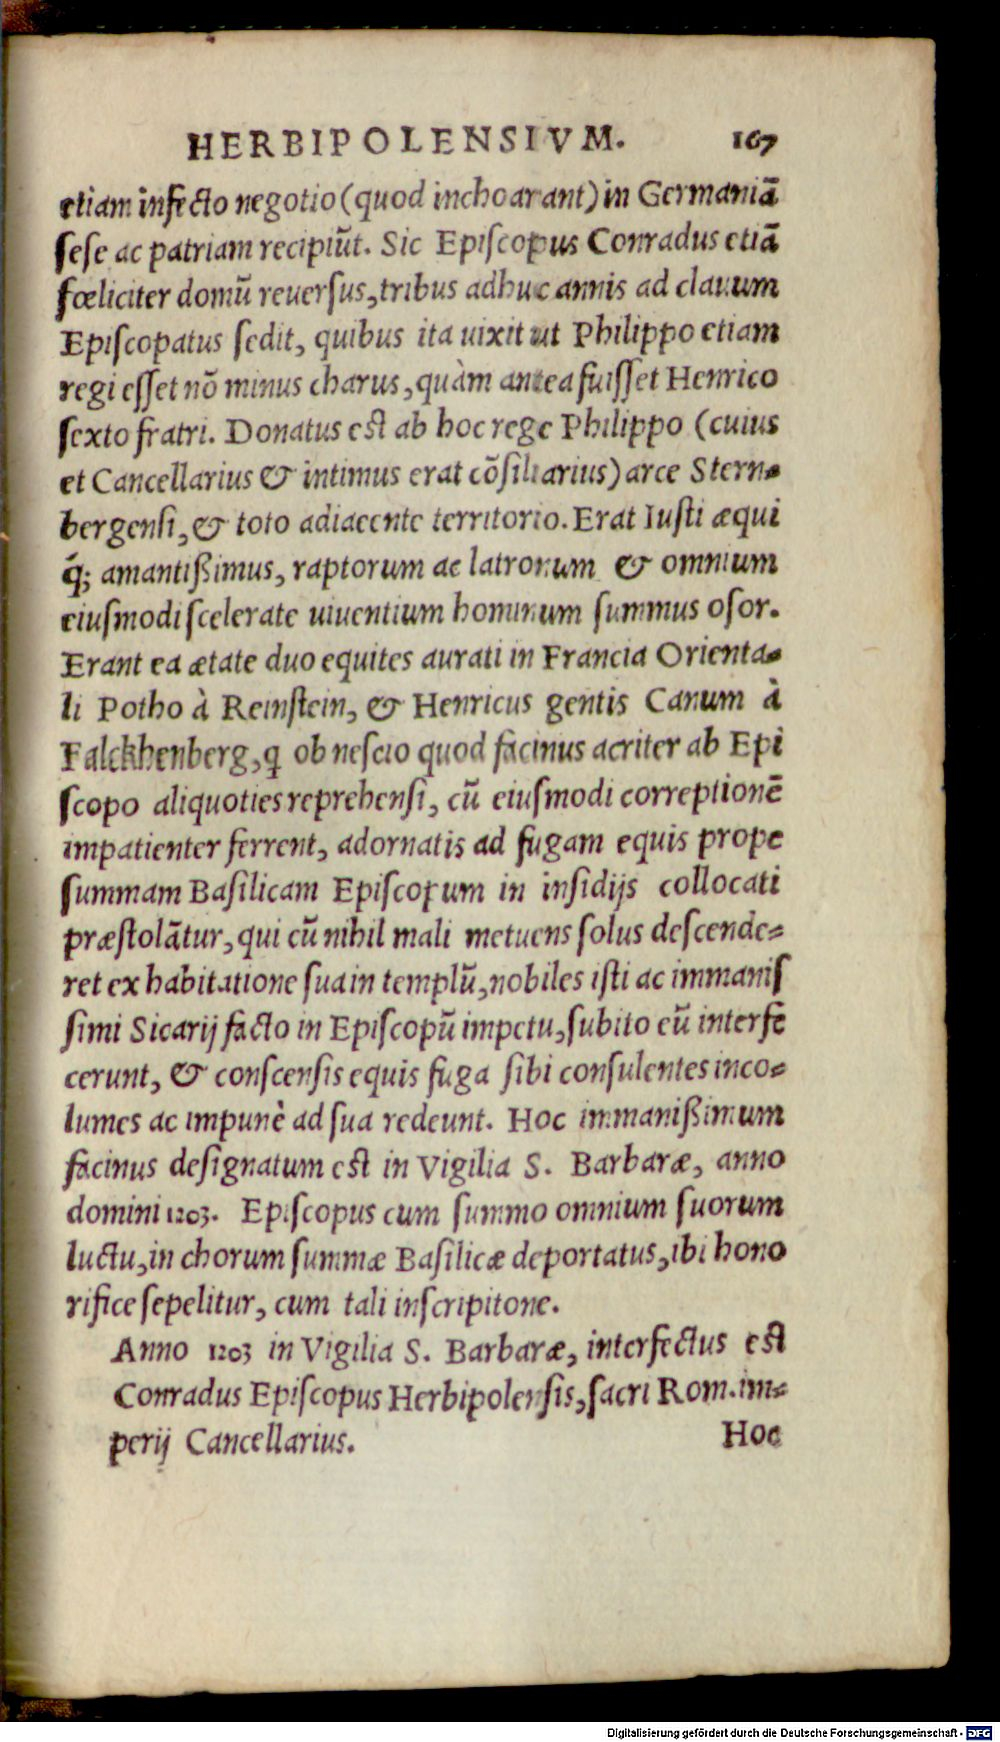 HERBIPOLENSIVM. 167
etiam infecto negotio (quod inchoarant) in Germaniã
ſeſe ac patriam recipiũt. Sic Epiſcopus Conradus etiã
fœliciter domũ reuerſus, tribus adhuc annis ad clauum
Epiſcopatus ſedit, quibus ita uixit ut Philippo etiam
regi eſſet nõ minus charus, quàm antea fuiſſet Henrico
ſexto fratri. Donatus eſt ab hoc rege Philippo (cuius
et Cancellarius & intimus erat cõſiliarius) arce Stern-
bergenſi, & toto adiacente territorio. Erat Iuſti æqui
q́; amantißimus, raptorum ac latronum & omnium
eiuſmodi ſcelerate uiuentium hominum ſummus oſor.
Erant ea ætate duo equites aurati in Francia Orienta-
li Potho à Reinſtein, & Henricus gentis Canum à
Falckhenberg, ꝗ ob neſcio quod facinus acriter ab Epi
ſcopo aliquoties reprehenſi, cũ eiuſmodi correptionẽ
impatienter ferrent, adornatis ad fugam equis prope
ſummam Baſilicam Epiſcopum in inſidijs collocati
præſtolãtur, qui cũ nihil mali metuens ſolus deſcende-
ret ex habitatione ſua in templũ, nobiles iſti ac immaniſ
ſimi Sicarij facto in Epiſcopũ impetu, ſubito eũ interfẽ
cerunt, & conſcenſis equis fuga ſibi conſulentes inco-
lumes ac impunè ad ſua redeunt. Hoc immanißimum
facinus deſignatum eſt in Vigilia S. Barbaræ, anno
domini 1203. Epiſcopus cum ſummo omnium ſuorum
luctu, in chorum ſummæ Baſilicæ deportatus, ibi hono
rifice ſepelitur, cum tali inſcripitone.
Anno 1203 in Vigilia S. Barbaræ, interfectus eſt
Conradus Epiſcopus Herbipolenſis, ſacri Rom. im-
perij Cancellarius.
Hoc
Digitalisierung gefördert durch die Deutsche Forschungsgemeinschaft - DFG